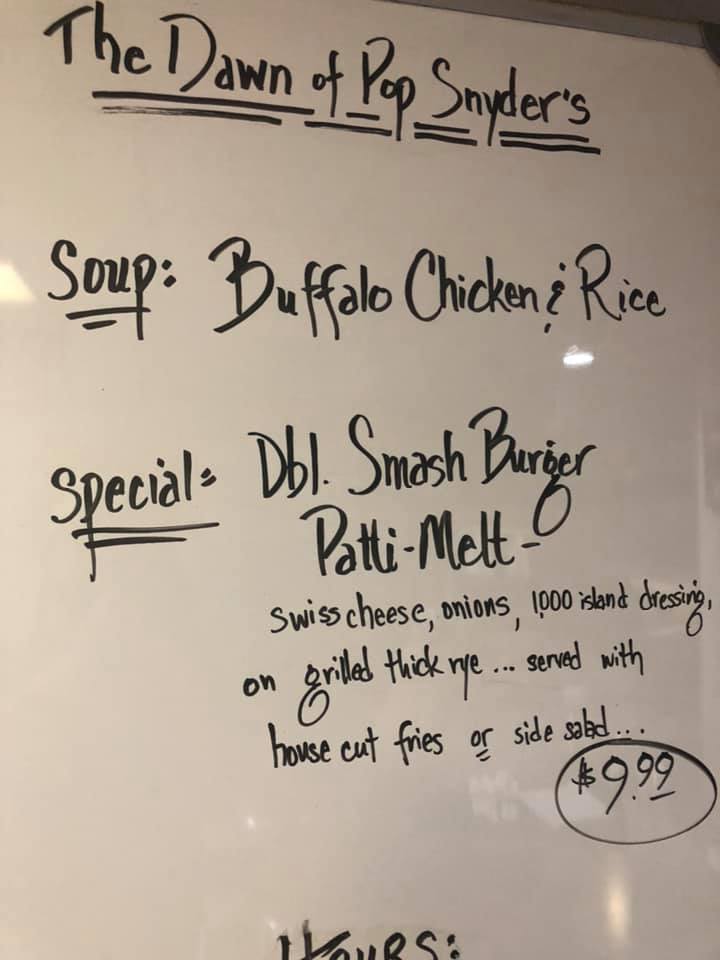 The Dawn of Pop Snyder's
Soup: Buffalo Chicken & Rice
Special: Dbl. Smash Burger
Patti-Melt-
swiss cheese, onions, 1,000 island dressing,
on grilled thick rye... served with
house cut fries or side salad...
$9.99
Hours: